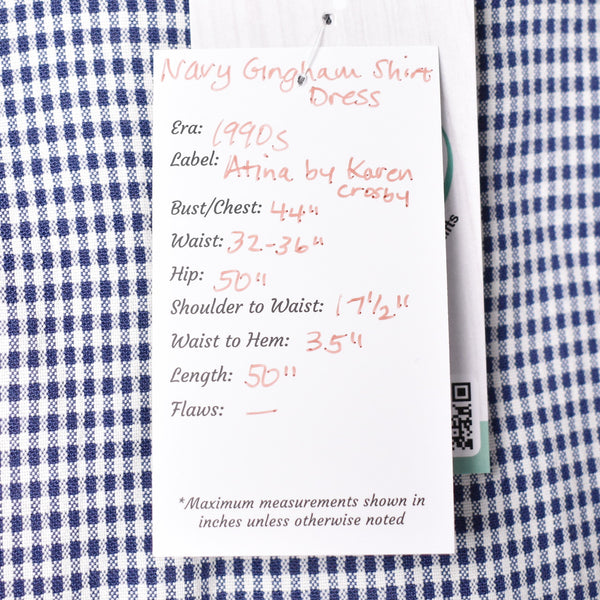 Navy Gingham Shirt
Dress
Era: 1990s
Label: Atina by Karen
Crosby
Bust/Chest: 44"
Waist: 32-36"
Hip: 50"
Shoulder to Waist: 17 1/2"
Waist to Hem: 35"
Length: 50"
Flaws: —
*Maximum measurements shown in
inches unless otherwise noted